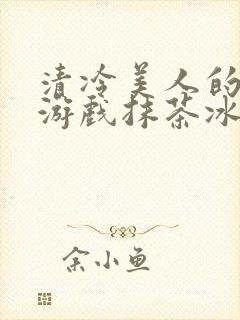 清冷美人的
游戏抹茶冰
余小鱼